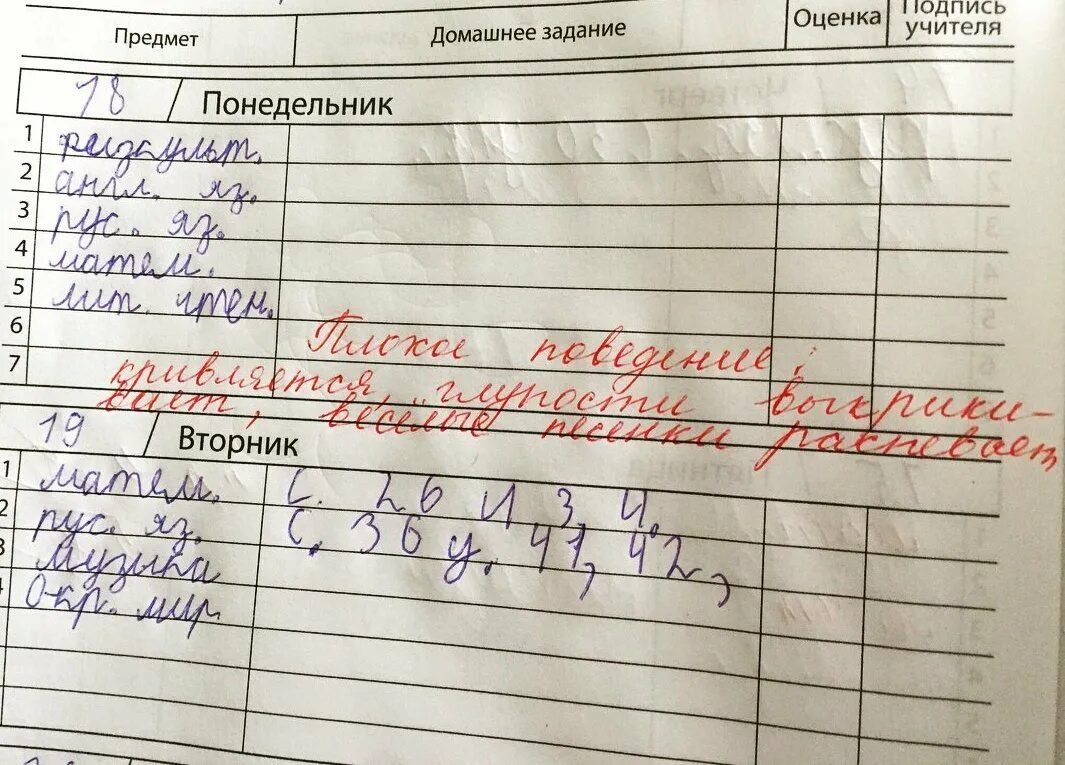 Предмет Домашнее задание Оценка Подпись учителя
18 Понедельник
1 физкульт.
2 англ. яз.
3 рус. яз.
4 матем.
5 лит. чтен.
6 Плохое поведение:
7 кривляется, глупости выкрики-
вает, весёлые песенки распевает
19 Вторник
1 матем. С. 26 И. 3, 4.
2 рус. яз. С. 36 у. 41, 42,
3 музыка
4 Окр. мир